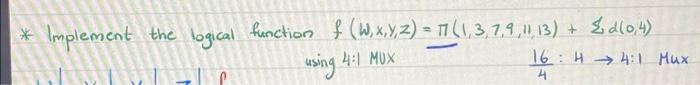 * Implement the logical function f(W,X,Y,Z) = π(1,3,7,9,11,13) + Σd(0,4)
using 4:1 MUX 16/4 : 4 → 4:1 Mux